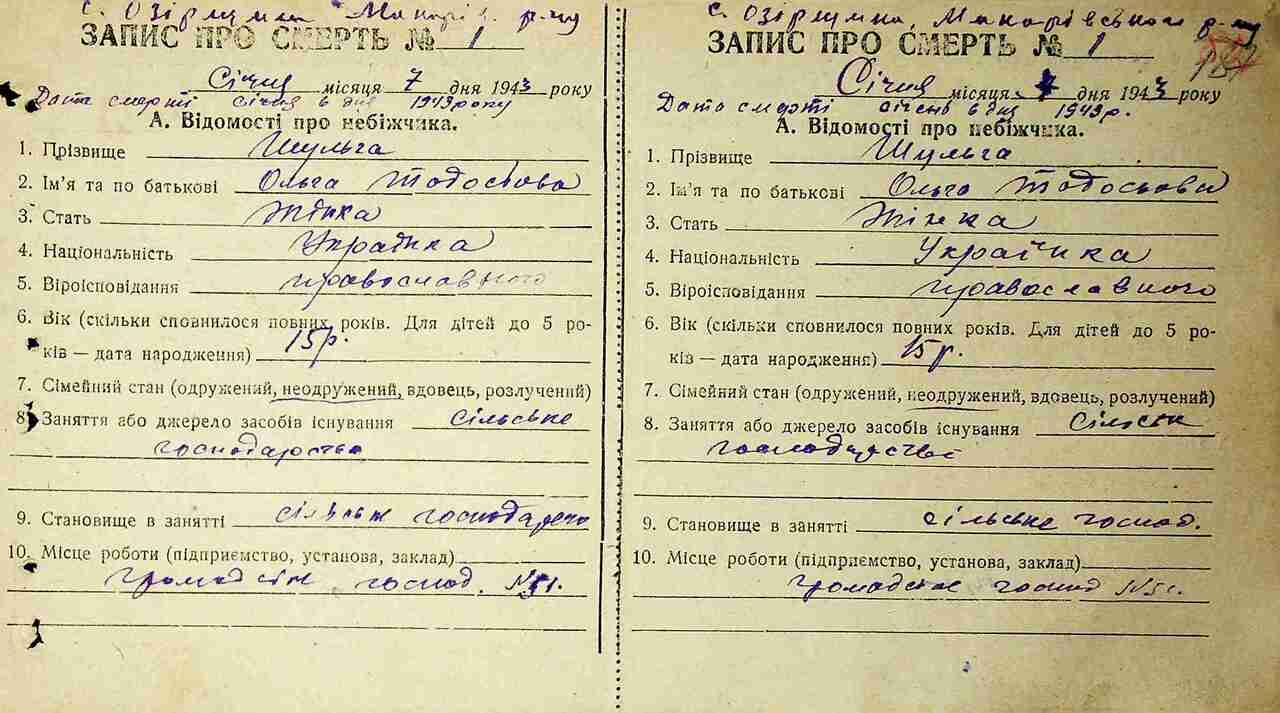 с. Озірщина Макарів. р-ну
ЗАПИС ПРО СМЕРТЬ № 1
Січня місяця 7 дня 1943 року
Дата смерті січня 6 дня 1943 року
А. Відомості про небіжчика.
1. Прізвище Шульга
2. Ім'я та по батькові Ольга Тодосьова
3. Стать Жінка
4. Національність Українка
5. Віроісповідання православного
6. Вік (скільки сповнилося повних років. Для дітей до 5 ро-
ків — дата народження) 15 р.
7. Сімейний стан (одружений, неодружений, вдовець, розлучений)
8. Заняття або джерело засобів існування сільське
господарство
9. Становище в занятті сільське
10. Місце роботи (підприємство, установа, заклад)
господ. №
с. Озірщина, Макарівського р-ну
ЗАПИС ПРО СМЕРТЬ № 1
Січня місяця 7 дня 1943 року
Дата смерті 6 дня 1943 р.
А. Відомості про небіжчика.
1. Прізвище Шульга
2. Ім'я та по батькові Ольга Тодосьова
3. Стать Жінка
4. Національність Українка
5. Віроісповідання православного
6. Вік (скільки сповнилося повних років. Для дітей до 5 ро-
ків — дата народження) 15 р.
7. Сімейний стан (одружений, неодружений, вдовець, розлучений)
8. Заняття або джерело засобів існування
9. Становище в занятті сільське господ.
10. Місце роботи (підприємство, установа, заклад)
господ №